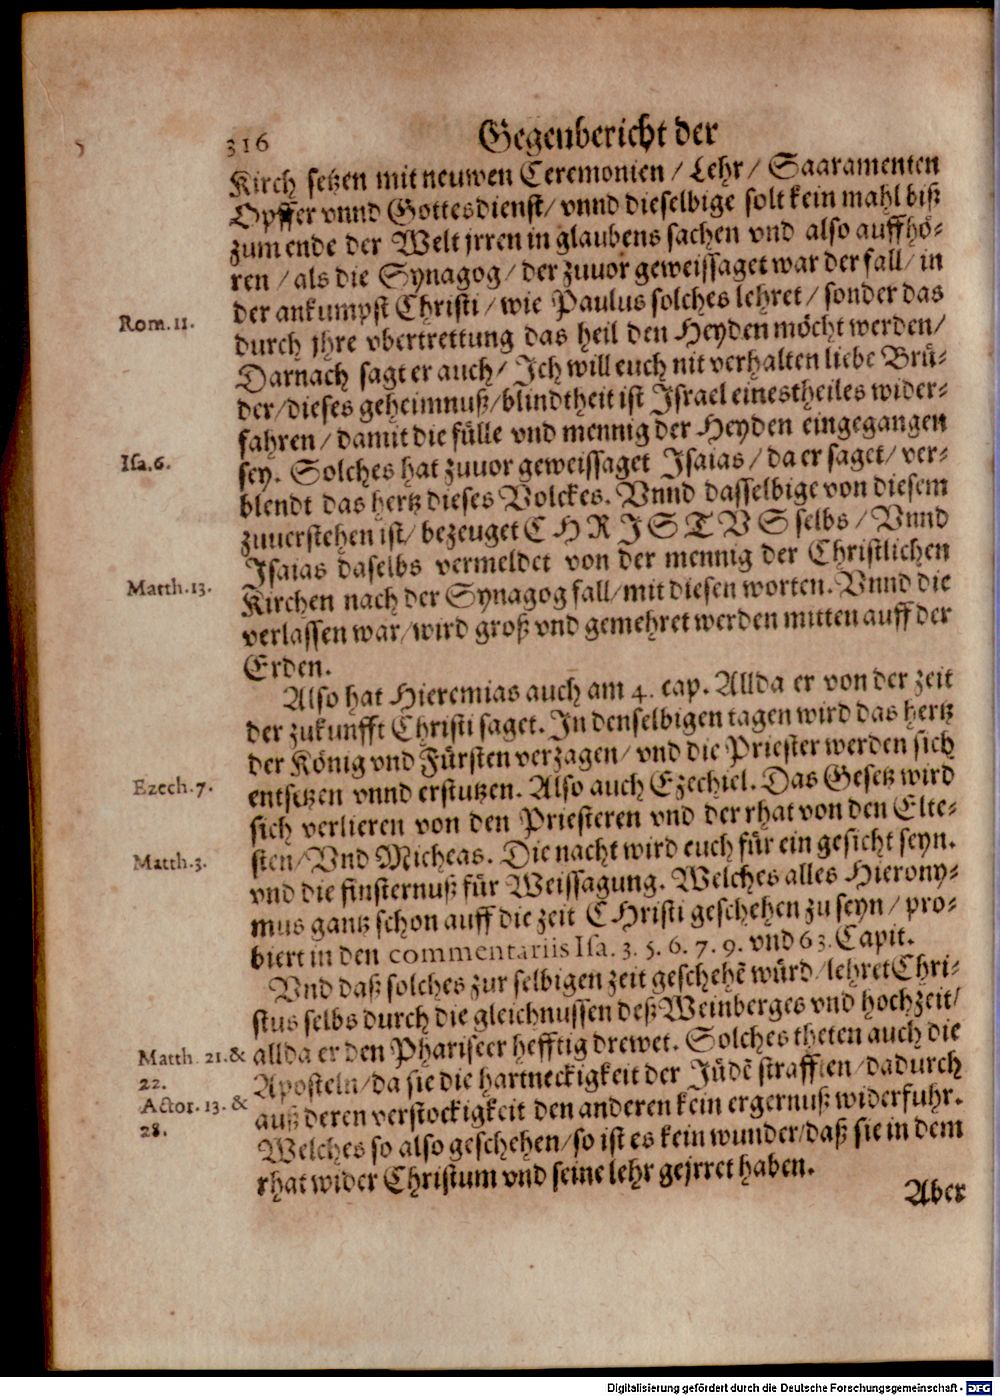 316 Gegenbericht der
Kirch setzen mit neuwen Ceremonien / Lehr / Saaramenten
Opffer vnnd Gottesdienst / vnnd dieselbige solt kein mahl biß
zum ende der Welt jrren in glaubens sachen vnd also auffhö-
ren / als die Synagog / der zuuor geweissaget war der fall / in
der ankumpst Christi / wie Paulus solches lehret / sonder das
Rom. 11.
durch jhre vbertrettung das heil den Heyden möcht werden /
Darnach sagt er auch / Ich will euch nit verhalten liebe Brü-
der / dieses geheimnuß / blindtheit ist Israel einestheiles wider-
fahren / damit die fülle vnd mennig der Heyden eingegangen
Isa. 6.
sey. Solches hat zuuor geweissaget Isaias / da er saget / ver-
blendt das hertz dieses Volckes. Vnnd dasselbige von diesem
zuuerstehen ist / bezeuget CHRISTVS selbs / Vnnd
Isaias daselbs vermeldet von der mennig der Christlichen
Matth. 13.
Kirchen nach der Synagog fall / mit diesen worten. Vnnd die
verlassen war / wird groß vnd gemehret werden mitten auff der
Erden.
Also hat Hieremias auch am 4. cap. Allda er von der zeit
der zukunfft Christi saget. In denselbigen tagen wird das hertz
der König vnd Fürsten verzagen / vnd die Priester werden sich
Ezech. 7.
entsetzen vnnd erstutzen. Also auch Ezechiel. Das Gesetz wird
sich verlieren von den Priesteren vnd der rhat von den Elte-
Matth. 3.
sten / Vnd Micheas. Die nacht wird euch für ein gesicht seyn.
vnd die finsternuß für Weissagung. Welches alles Hierony-
mus gantz schon auff die zeit CHristi geschehen zu seyn / pro-
biert in den commentariis Isa. 3. 5. 6. 7. 9. vnd 63. Capit.
Vnd daß solches zur selbigen zeit geschehẽ würd / lehret Chri-
stus selbs durch die gleichnussen deß Weinberges vnd hochzeit /
Matth. 21. &
22.
allda er den Phariseer hefftig drewet. Solches theten auch die
Aposteln / da sie die hartneckigkeit der Jüdẽ strafften / dadurch
Actor. 13. &
28.
auß deren verstockigkeit den anderen kein ergernuß widerfuhr.
Welches so also geschehen / so ist es kein wunder / daß sie in dem
rhat wider Christum vnd seine lehr gejrret haben.
Aber
Digitalisierung gefördert durch die Deutsche Forschungsgemeinschaft - DFG